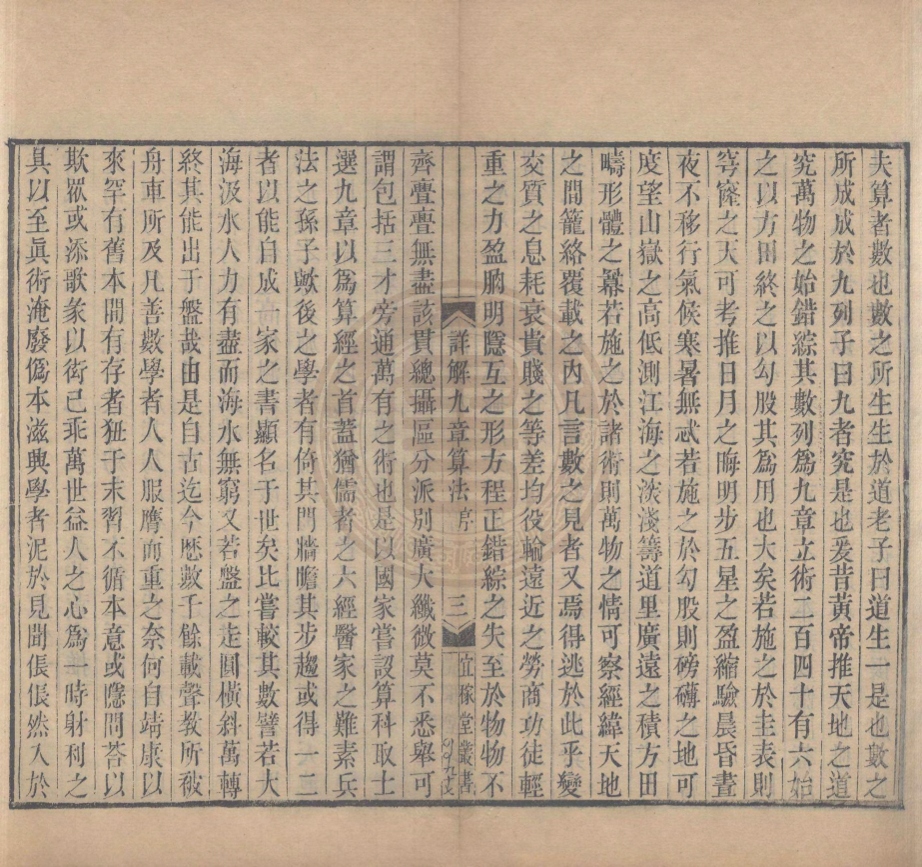 夫算者數也數之所生生於道老子曰道生一是也數之
所成成於九列子曰九者究是也爰昔黃帝推天地之道
究萬物之始錯綜其數列爲九章立術二百四十有六始
之以方田終之以勾股其爲用也大矣若施之於圭表則
穹窿之天可考推日月之晦明步五星之盈縮驗晨昏晝
夜不移行氣候寒暑無忒若施之於勾股則磅礡之地可
度望山嶽之高低測江海之淡淺籌道里廣遠之積方田
疇形體之冪若施之於諸術則萬物之情可察經緯天地
之間籠絡覆載之內凡言數之見者又焉得逃於此乎變
交質之息耗衰貴賤之等差均役輸遠近之勞商功徒輕
重之力盈朒明隱互之形方程正錯綜之失至於物物不
詳解九章算法 序 三 宜稼堂叢書
齊亹亹無盡該貫總攝區分派別廣大纖微莫不悉舉可
謂包括三才旁通萬有之術也是以國家嘗設算科取士
選九章以爲算經之首蓋猶儒者之六經醫家之難素兵
法之孫子歟後之學者有倚其門牆瞻其步趨或得一二
者以能自成一家之書顯名于世矣比嘗較其數譬若大
海汲水人力有盡而海水無窮又若盤之走圓橫斜萬轉
終其能出于盤哉由是自古迄今歷數千餘載聲教所被
舟車所及凡善數學者人人服膺而重之奈何自靖康以
來罕有舊本間有存者狃于末習不循本意或隱問荅以
欺眾或添歌彖以衒己乖萬世益人之心爲一時射利之
具以至眞術淹廢僞本滋興學者泥於見聞倀倀然入於